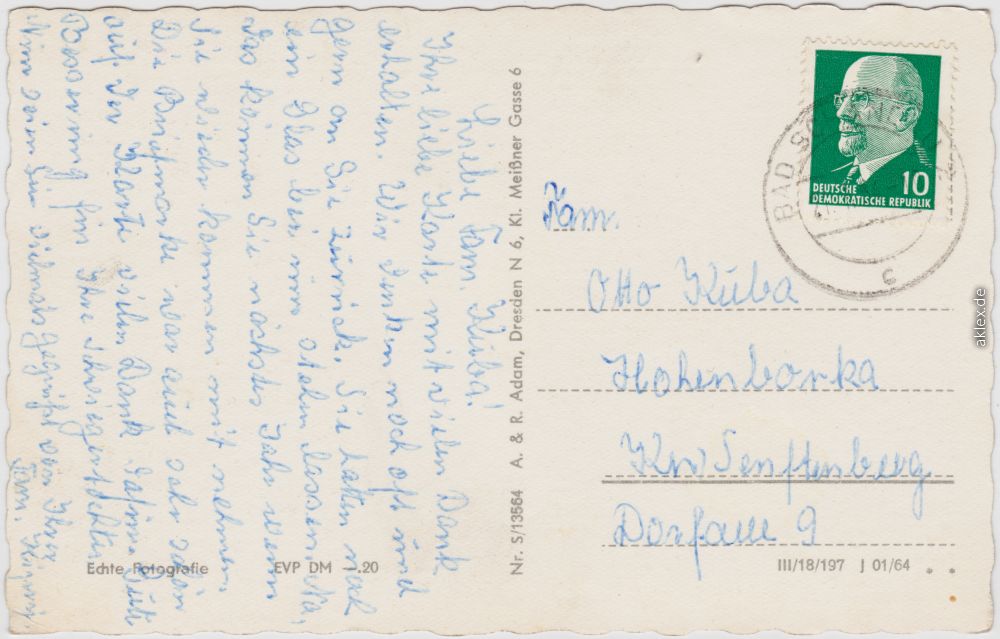 Liebe Fam. Kuba!
Ihre liebe Karte mit vielen Dank
erhalten. Wir denken noch oft und
gern an Sie zurück. Sie hatten noch
ein Glas bei uns stehn lassen
das können Sie nächstes Jahr wenn
Sie wieder kommen mit nehmen.
Die Briefmarke war auch sehr schön
auf der Karte vielen Dank dafür. Gute
Besserung für Ihre
Nun seien Sie vielmals gegrüßt von Ihrer
Fam.
Echte Fotografie
EVP DM –.20
Nr. S/13564 A. & R. Adam, Dresden N 6, Kl. Meißner Gasse 6
DEUTSCHE
DEMOKRATISCHE REPUBLIK
10
BAD SC
c
Fam.
Otto Kuba
Hohenborka
Krs Senftenberg
Dorfaue 9
III/18/197 J 01/64
aklex.de